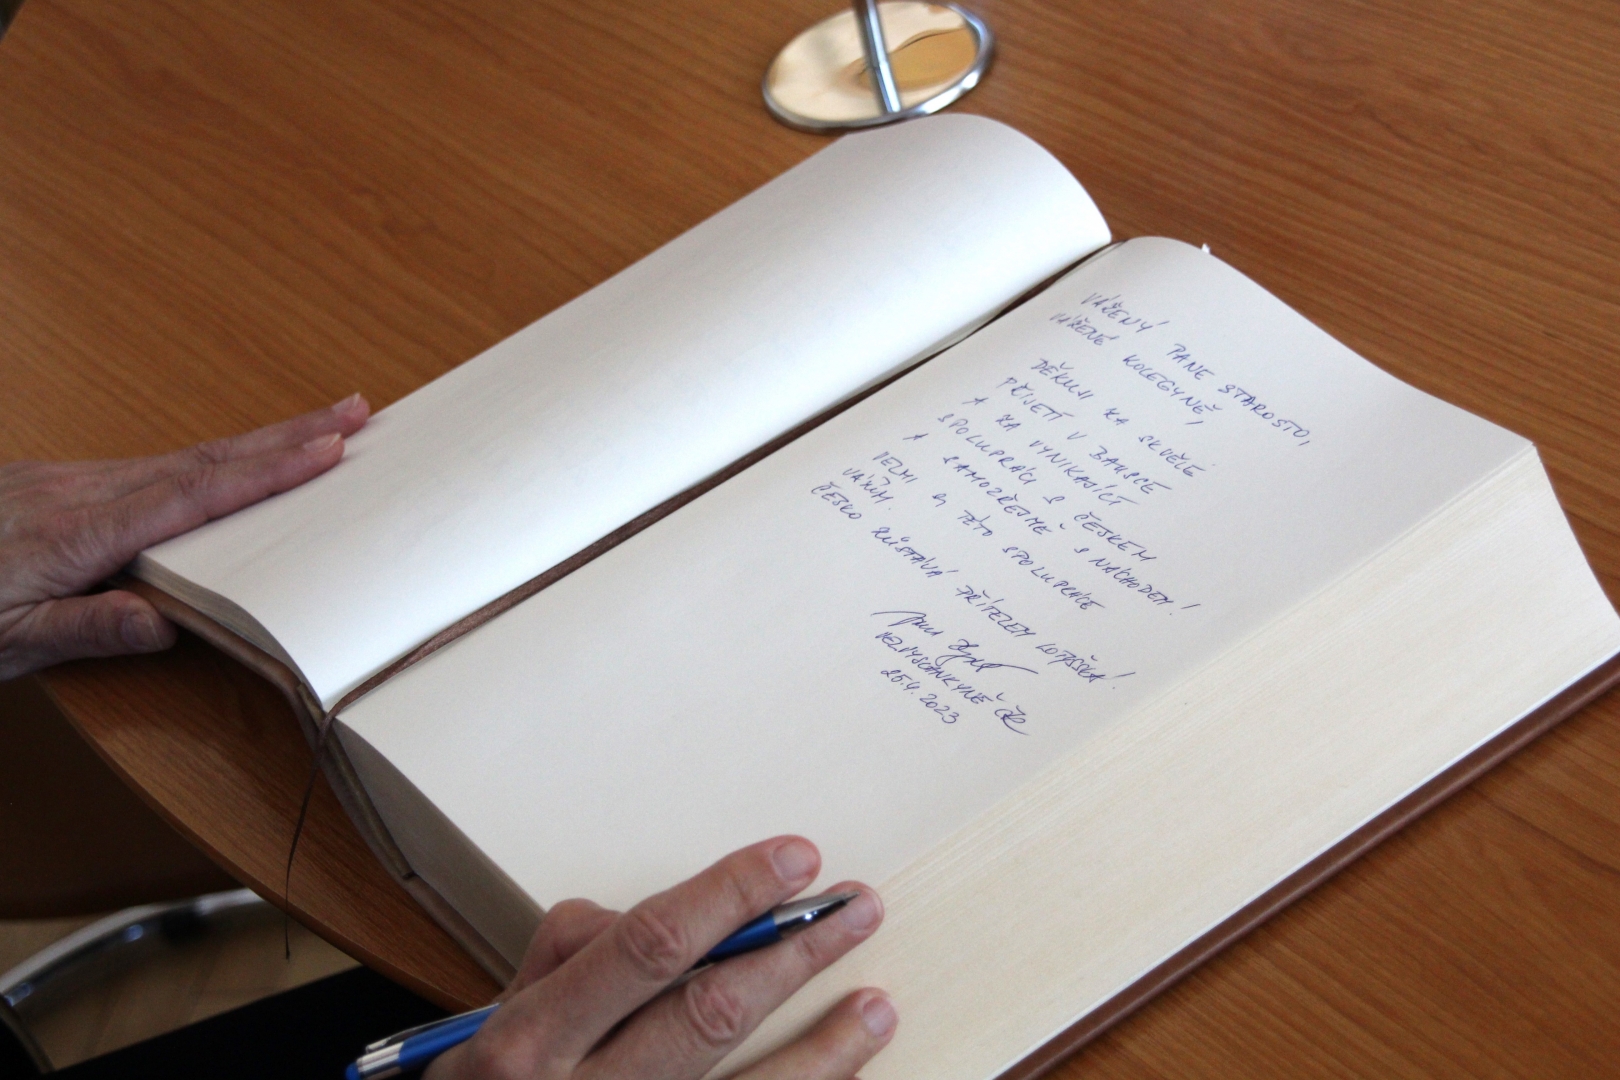 VÁŽENÝ PANE STAROSTO,
VÁŽENÉ KOLEGYNĚ,
DĚKUJI ZA SKVĚLÉ
PŘIJETÍ V BAUSCE
A ZA VYNIKAJÍCÍ
SPOLUPRÁCI S ČESKEM
A SAMOZŘEJMĚ S NÁCHODEM!
VELMI SI TÉTO SPOLUPRÁCE
VÁŽÍM.
ČESKO ZŮSTÁVÁ PŘÍTELEM LOTYŠSKA!
VELVYSLANKYNĚ ČR
25.4.2023